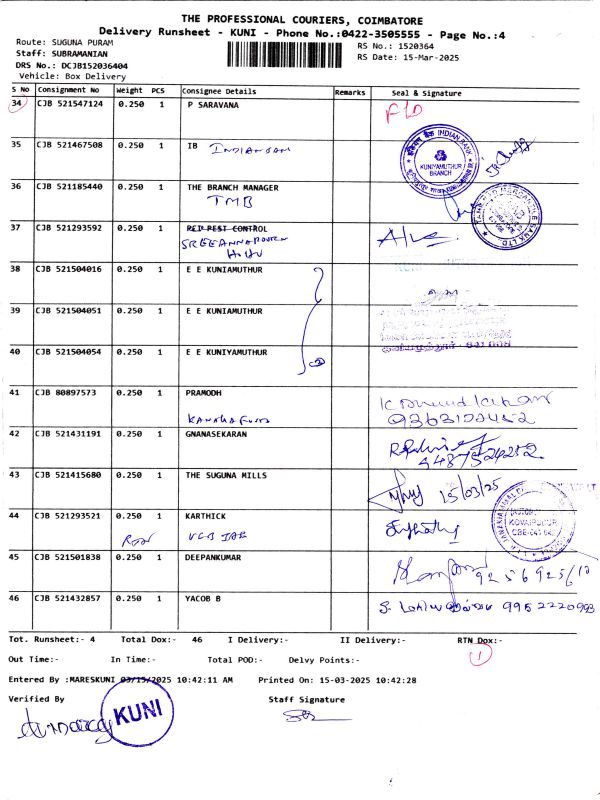 THE PROFESSIONAL COURIERS, COIMBATORE
Delivery Runsheet - KUNI - Phone No.:0422-3505555 - Page No.:4
Route: SUGUNA PURAM
RS No.: 1520364
Staff: SUBRAMANIAN
RS Date: 15-Mar-2025
DRS No.: DCJB152036404
Vehicle: Box Delivery
S No Consignment No Weight PCS Consignee Details Remarks Seal & Signature
34 CJB 521547124 0.250 1 P SARAVANA
35 CJB 521467508 0.250 1 IB
INDIAN BANK
KUNIYAMUTHUR
BRANCH
36 CJB 521185440 0.250 1 THE BRANCH MANAGER
TMB
37 CJB 521293592 0.250 1 RED PEST CONTROL
38 CJB 521504016 0.250 1 E E KUNIAMUTHUR
39 CJB 521504051 0.250 1 E E KUNIAMUTHUR
40 CJB 521504054 0.250 1 E E KUNIYAMUTHUR
41 CJB 80897573 0.250 1 PRAMODH
42 CJB 521431191 0.250 1 GNANASEKARAN
43 CJB 521415680 0.250 1 THE SUGUNA MILLS
15/03/25
44 CJB 521293521 0.250 1 KARTHICK
45 CJB 521501838 0.250 1 DEEPANKUMAR
46 CJB 521432857 0.250 1 YACOB B
Tot. Runsheet:- 4 Total Dox:- 46 I Delivery:- II Delivery:- RTN Dox:-
1
Out Time:- In Time:- Total POD:- Delvy Points:-
Entered By :MARESKUNI 03/15/2025 10:42:11 AM Printed On: 15-03-2025 10:42:28
Verified By Staff Signature
KUNI